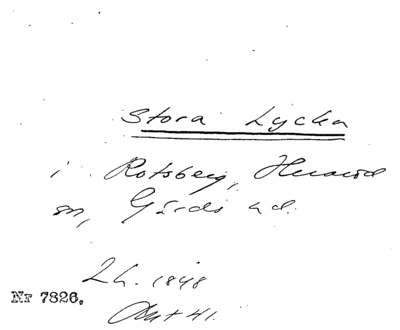 Stora Lycka
i Rotsberg, Huaröd
sn, Gärds hd.
L h. 1848
Nr 7826.
Akt 41.